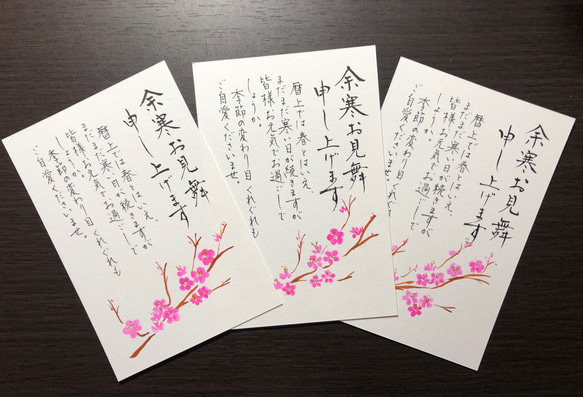 余寒お見舞
申し上げます
暦上では春とはいえ、
まだまだ寒い日が続きますが
皆様お元気でお過ごしで
しょうか。
季節の変わり目くれぐれも
ご自愛くださいませ。
余寒お見舞
申し上げます
暦上では春とはいえ、
まだまだ寒い日が続きますが
皆様お元気でお過ごしで
しょうか。
季節の変わり目くれぐれも
ご自愛くださいませ。
余寒お見舞
申し上げます
暦上では春とはいえ、
まだまだ寒い日が続きますが
皆様お元気でお過ごしで
しょうか。
季節の変わり目くれぐれも
ご自愛くださいませ。